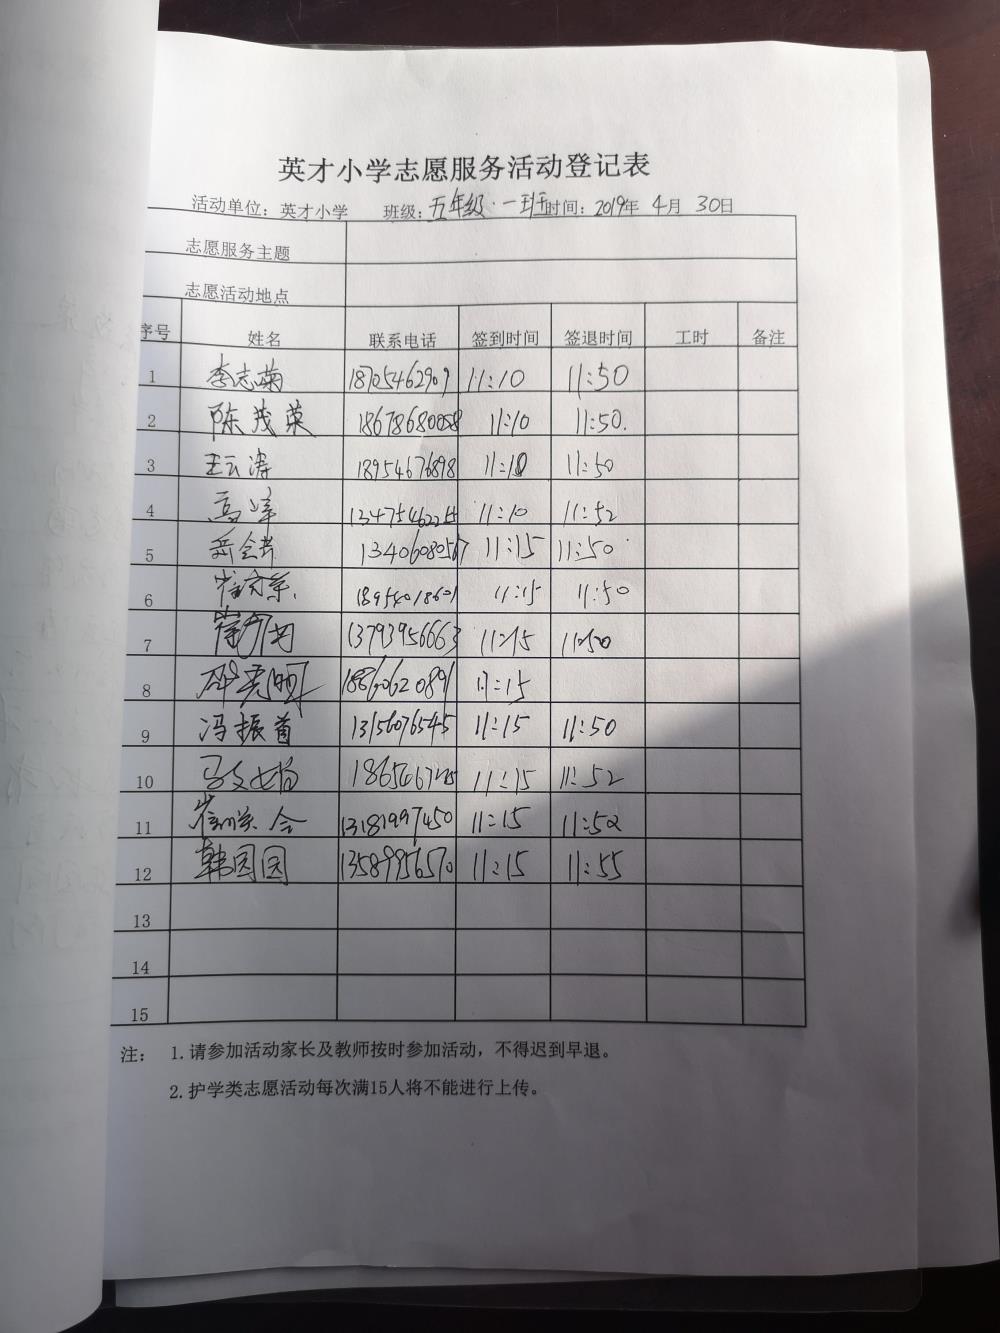 英才小学志愿服务活动登记表
活动单位：英才小学 班级：五年级·一班 时间：2019年 4月 30日
志愿服务主题
志愿活动地点
序号 姓名 联系电话 签到时间 签退时间 工时 备注
1 李志菊 18705462909 11:10 11:50
2 陈茂英 18678680058 11:10 11:50.
3 王云涛 18954676898 11:10 11:50
4 高峰 11:10 11:52
5 13406080567 11:15 11:50
6 18954018601 11:15 11:50
7 13793956663 11:15 11:50
8 11:15
9 冯振首 13156076545 11:15 11:50
10 11:15 11:52
11 13181997450 11:15 11:52
12 韩园园 13589956570 11:15 11:55
13
14
15
注： 1.请参加活动家长及教师按时参加活动，不得迟到早退。
2.护学类志愿活动每次满15人将不能进行上传。